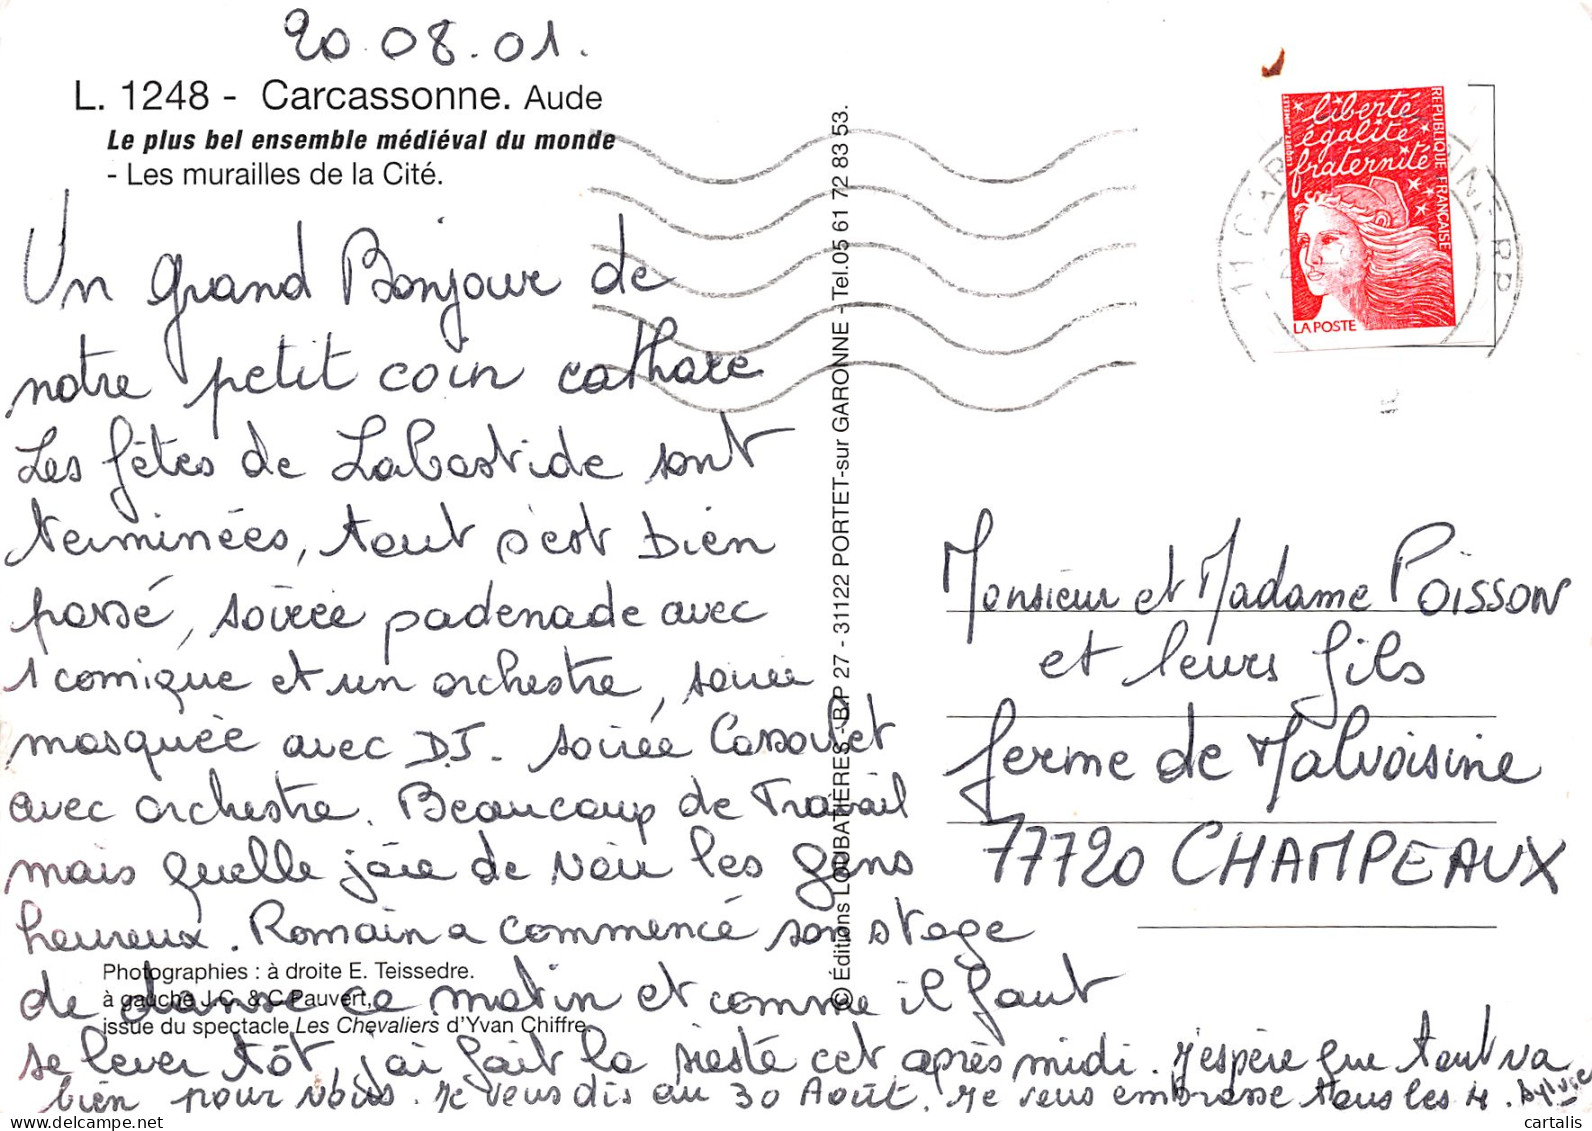 20.08.01.
L. 1248 - Carcassonne. Aude
Le plus bel ensemble médiéval du monde
- Les murailles de la Cité.
Un grand Bonjour de
notre petit coin cathare
Les fêtes de Labastide sont
terminées, tout s'est bien
passé, soirée padenade avec
1 comique et un orchestre, soirée
masquée avec DJ. soirée Cassoulet
avec orchestre. Beaucoup de Travail
mais quelle joie de voir les gens
heureux. Romain a commencé son stage
de danse ce matin et comme il faut
se lever tôt, j'ai fait la sieste cet après midi. J'espère que tout va
bien pour vous. Je vous dis au 30 Août. Je vous embrasse tous les 4. Sylvie
Photographies : à droite E. Teissedre.
à gauche J.C. & C.Pauvert,
issue du spectacle Les Chevaliers d'Yvan Chiffre.
© Éditions LOUBATIÈRES - B.P 27 - 31122 PORTET-sur GARONNE - Tel.05 61 72 83 53.
liberté
égalité
fraternité
REPUBLIQUE FRANÇAISE
LA POSTE
11 CAR NNE RP
Monsieur et Madame POISSON
et leurs fils
ferme de Malvoisine
77720 CHAMPEAUX
cartalis